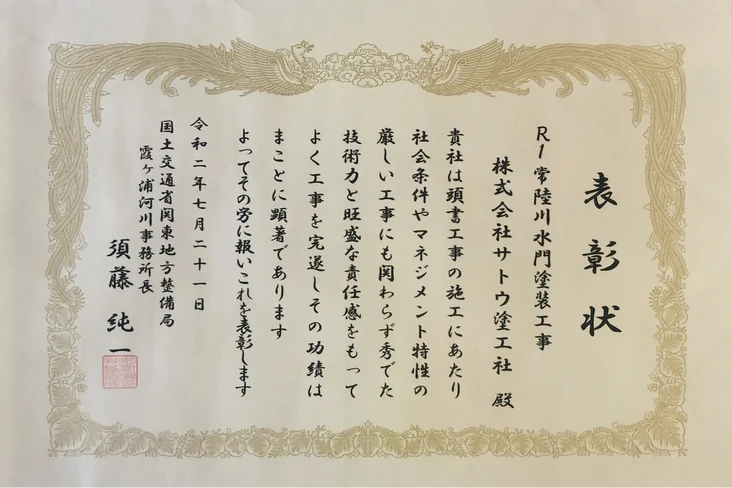 表彰状
R1常陸川水門塗装工事
株式会社サトウ塗工社 殿
貴社は頭書工事の施工にあたり
社会条件やマネジメント特性の
厳しい工事にも関わらず秀でた
技術力と旺盛な責任感をもって
よく工事を完遂しその功績は
まことに顕著であります
よってその労に報いこれを表彰します
令和二年七月二十一日
国土交通省関東地方整備局
霞ヶ浦河川事務所長
須藤純一